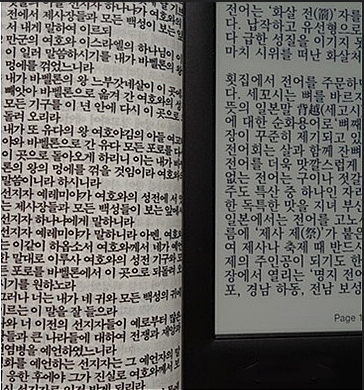 선지자 하나냐가 여호와의
전에서 제사장들과 모든 백성이 보는
서 내게 말하여 이르되
만군의 여호와 이스라엘의 하나님이
이 일러 말씀하시기를 내가 바벨론의 왕
멍에를 꺾었느니라
내가 바벨론의 왕 느부갓네살이 이 곳에
빼앗아 바벨론으로 옮겨 간 여호와의 성
모든 기구를 이 년 안에 다시 이 곳으
돌려 오리라
내가 또 유다의 왕 여호야김의 아들 여고
야와 바벨론으로 간 유다 모든 포로를 다
이 곳으로 돌아오게 하리니 이는 내가 바
론의 왕의 멍에를 꺾을 것임이라 여호와의
말씀이니라 하시니라
선지자 예레미야가 여호와의 성전에 서
는 제사장들과 모든 백성들이 보는 앞에
선지자 하나냐에게 말하니라
선지자 예레미야가 말하니라 아멘, 여호와
는 이같이 하옵소서 여호와께서 네가 예언
한 말대로 이루사 여호와의 성전 기구와 모
든 포로를 바벨론에서 이 곳으로 되돌려 오
시기를 원하노라
그러나 너는 내가 네 귀와 모든 백성의 귀에
이르는 이 말을 잘 들으라
나와 너 이전의 선지자들이 예로부터 많은
땅들과 큰 나라들에 대하여 전쟁과 재앙과
염병을 예언하였느니라
평화를 예언하는 선지자는 그 예언자의 말
응한 후에야 그가 진실로 여호와께서
전어는 '화살 전(箭)' 자
다. 납작하고 유선형으로
다 급한 성질을 이기지 못
마치 시위를 떠난 화살처
횟집에서 전어를 주문하
다. 세꼬시는 뼈를 바르지
뜻의 일본말 背越(세고시
에 대한 순화용어로 뼈째
장이 꾸준히 제기되고 있
전어회는 살과 함께 잔뼈
전어를 더욱 맛깔스럽게
없는 전어는 구이나 젓갈
주도 특산 중 하나인 자리
한 독특한 맛을 지녀 부산
일본에서는 전어를 고노시
름에 '제사 제(祭)'가 붙은
여 제사나 축제 때 반드시
제의 주인공이 되기도 한
장에서 열리는 '명지 전어
포, 경남 하동, 전남 보성
Page 1